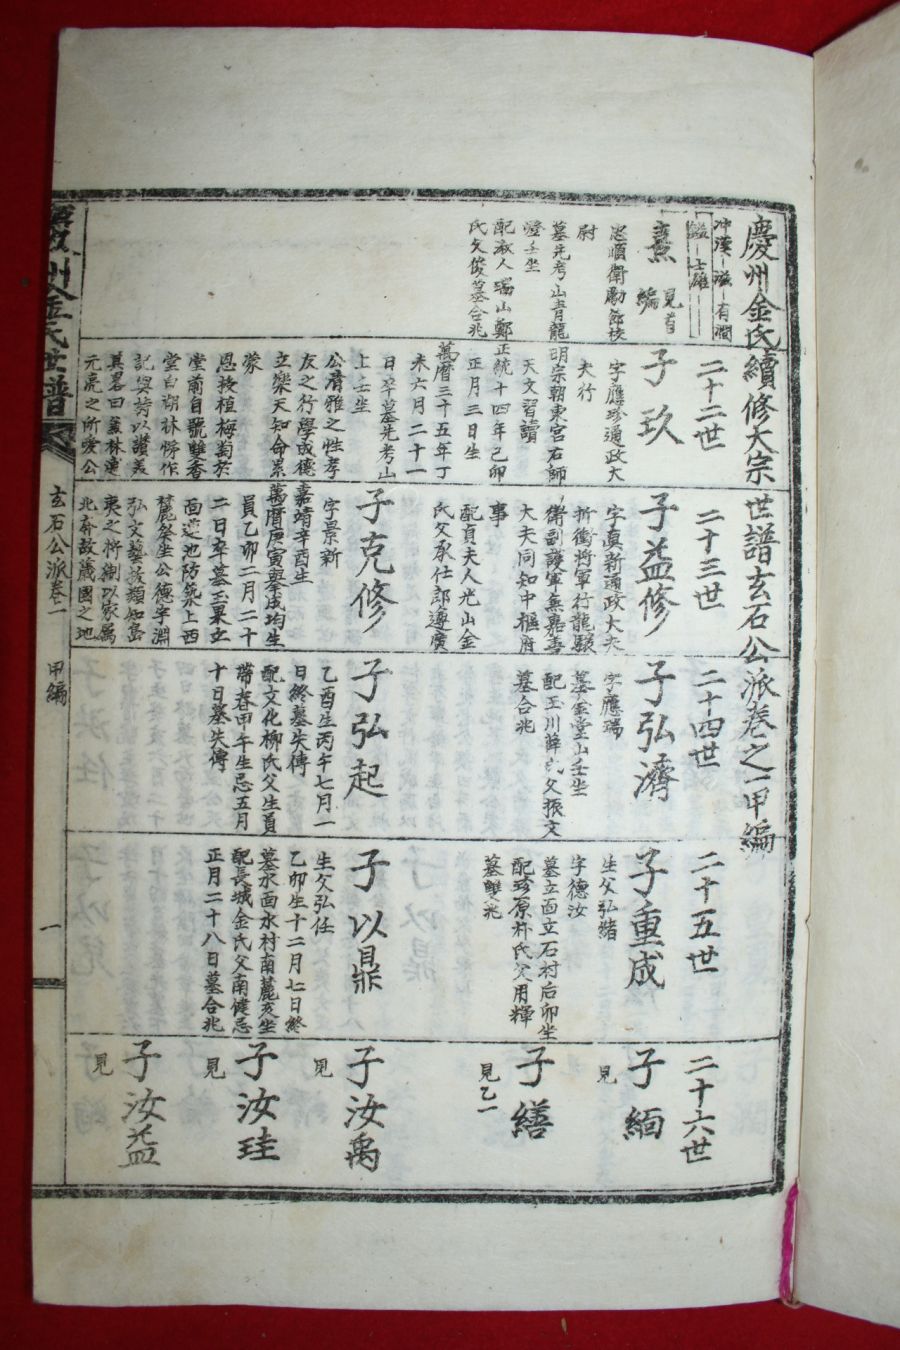 慶州金氏續修大宗世譜玄石公派卷之一甲編
冲漢 瑞 有澗
士雄
熹
見首編
忠順衛勵節校
尉
墓先考山青龍
嶝壬坐
配淑人瑞山鄭
氏父俊墓合兆
二十二世
子玖
字應珍通政大
夫行
明宗朝東宮右師
天文習讀
正統十四年己卯
正月三日生
萬曆三十五年丁
未六月二十一
日卒墓先考山
上壬坐
公清雅之性孝
友之行學成德
立樂天知命累
蒙
恩技植梅菊於
堂前自號雙香
堂白湖林悌作
記與詩以讚美
其君曰
元亮之所愛公
二十三世
子益修
字真新通政大夫
折衝將軍行龍驤
衛副護軍無嘉善
大夫同知中樞府
事
配貞夫人光山金
氏父承仕郎遵廣
子克修
字景新
嘉靖辛酉生
萬曆庚寅舉成均生
員乙卯二月二十
二日卒墓玉果立
面蓮池防築上西
麓癸坐公德宇淵
弘文藝
夷之將
北斎故蕆國之地
二十四世
子弘濟
字應瑞
墓金堂山壬坐
配玉川薛氏父振文
墓合兆
子弘起
乙酉生丙午七月二
日終墓失傳
配文化柳氏父生員
帶春甲午生忌五月
十日墓失傳
二十五世
子重成
生父弘緖
字德汝
墓立面立石村后卯坐
配珍原朴氏父用輝
墓雙兆
子以鼎
生父弘任
乙卯生十二月七日終
墓水面水村南麓亥坐
配長城金氏父南健忌
正月二十八日墓合兆
二十六世
子緬
見
子繕
見乙一
子汝禹
見
子汝珪
見
子汝益
見
慶州金氏世譜
玄石公派卷一
甲編
一